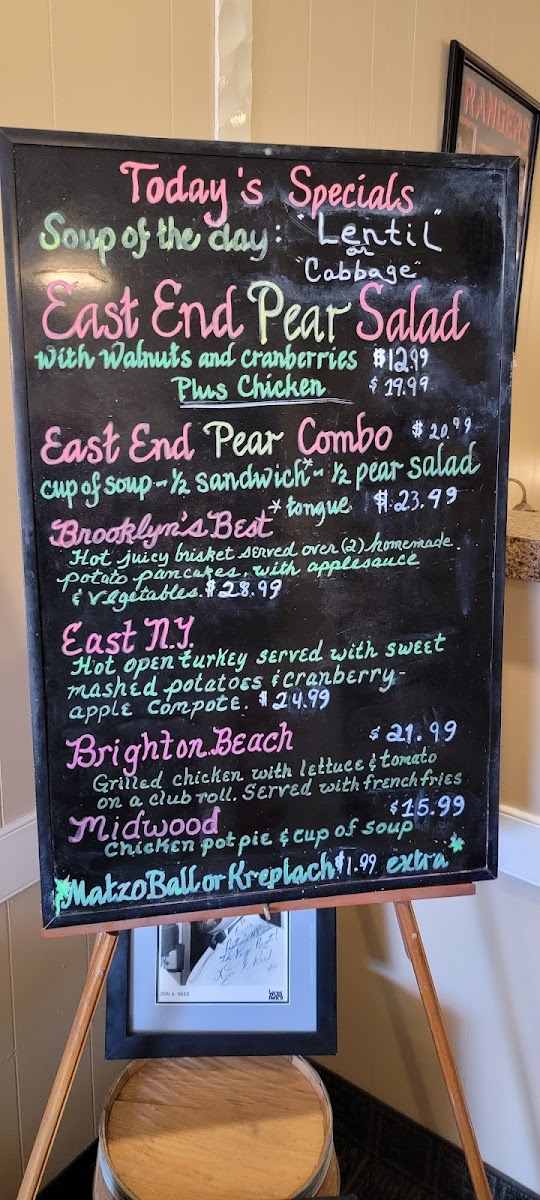 RANGERS
Today's Specials
Soup of the day: "Lentil"
or
"Cabbage"
East End Pear Salad
with Walnuts and cranberries $12.99
Plus Chicken $19.99
East End Pear Combo $20.99
cup of soup - 1/2 sandwich* - 1/2 pear salad
*tongue $23.99
Brooklyn's Best
Hot juicy brisket served over (2) homemade
potato pancakes, with applesauce
& vegetables. $28.99
East N.Y.
Hot open turkey served with sweet
mashed potatoes & cranberry-
apple compote. $24.99
Brighton Beach $21.99
Grilled chicken with lettuce & tomato
on a club roll. Served with french fries
Midwood $15.99
Chicken pot pie & cup of soup
*Matzo Ball or Kreplach $1.99 extra*
DON K. REED